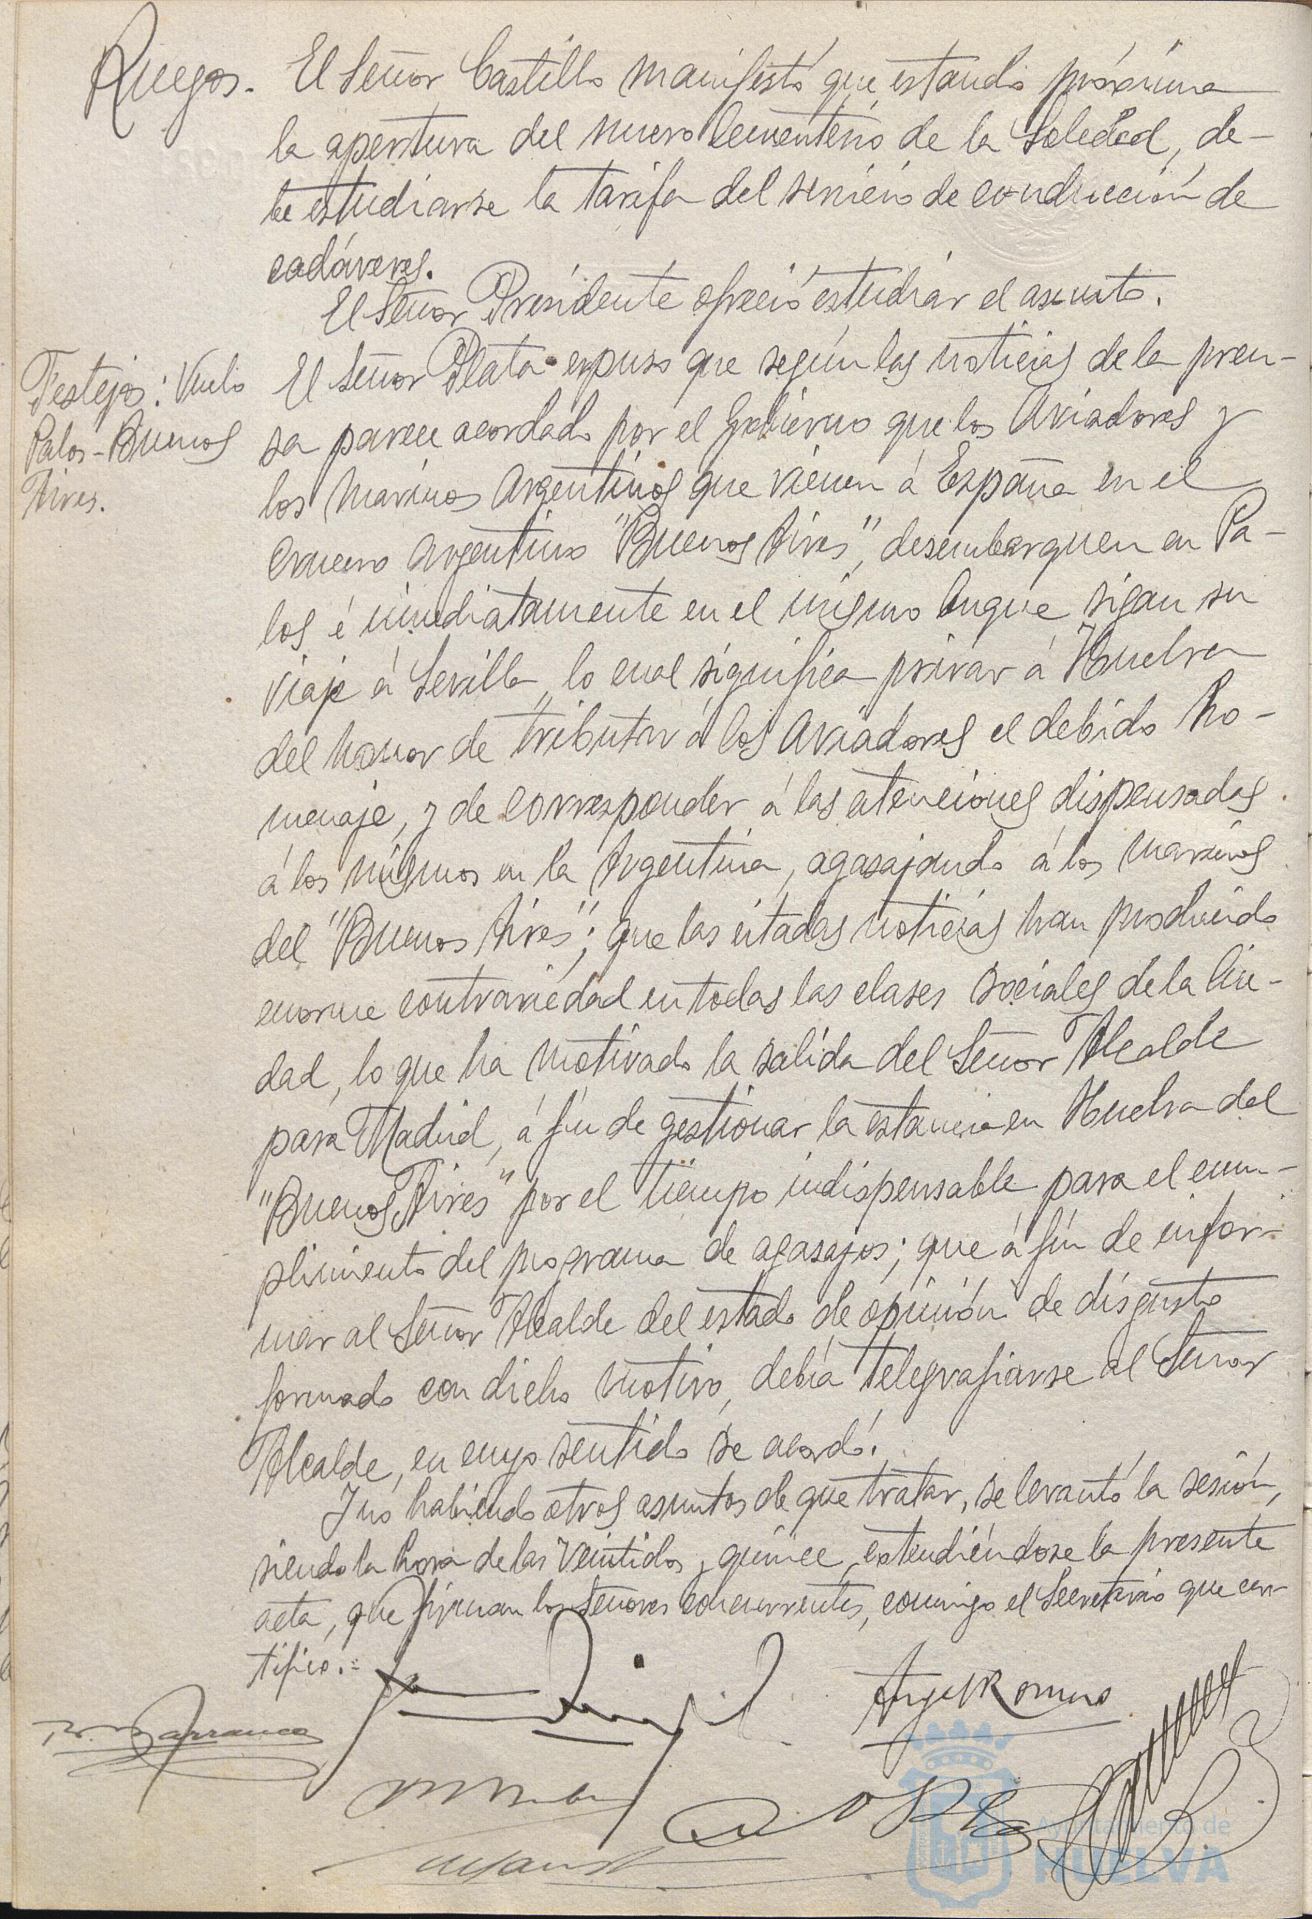 Ruegos. El Señor Castillo manifestó que estando próxima
la apertura del nuevo Cementerio de la Soledad, de-
be estudiarse la tarifa del servicio de conducción de
cadáveres.
El Señor Presidente ofreció estudiar el asunto.
Festejos: Vuelo
Palos-Buenos
Aires.
El Señor Plata expuso que según las noticias de la pren-
sa parece acordado por el Gobierno que los Aviadores y
los marinos Argentinos que vienen á España en el
crucero Argentino "Buenos Aires", desembarquen en Pa-
los é inmediatamente en el mismo buque sigan su
viaje á Sevilla, lo cual significa privar á Huelva
del honor de tributar á los Aviadores el debido ho-
menaje, y de corresponder á las atenciones dispensadas
á los mismos en la Argentina, agasajando á los marinos
del "Buenos Aires"; que las citadas noticias han producido
enorme contrariedad en todas las clases sociales de la Ciu-
dad, lo que ha motivado la salida del Señor Alcalde
para Madrid, á fin de gestionar la estancia en Huelva del
"Buenos Aires" por el tiempo indispensable para el cum-
plimiento del programa de agasajos; que á fin de infor-
mar al Señor Alcalde del estado de opinión de disgusto
formado con dicho motivo, debía telegrafiarse al Señor
Alcalde, en cuyo sentido se acordó.
Y no habiendo otros asuntos de que tratar, se levantó la sesión,
siendo la hora de las veintidos y quince, extendiéndose la presente
acta, que firman los Señores concurrentes, conmigo el Secretario que cer-
tifico.=
Barranco
Ayuntamiento de
HUELVA